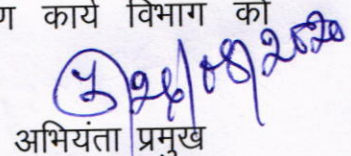 ण कार्य विभाग को
26/08/2020
अभियंता प्रमुख